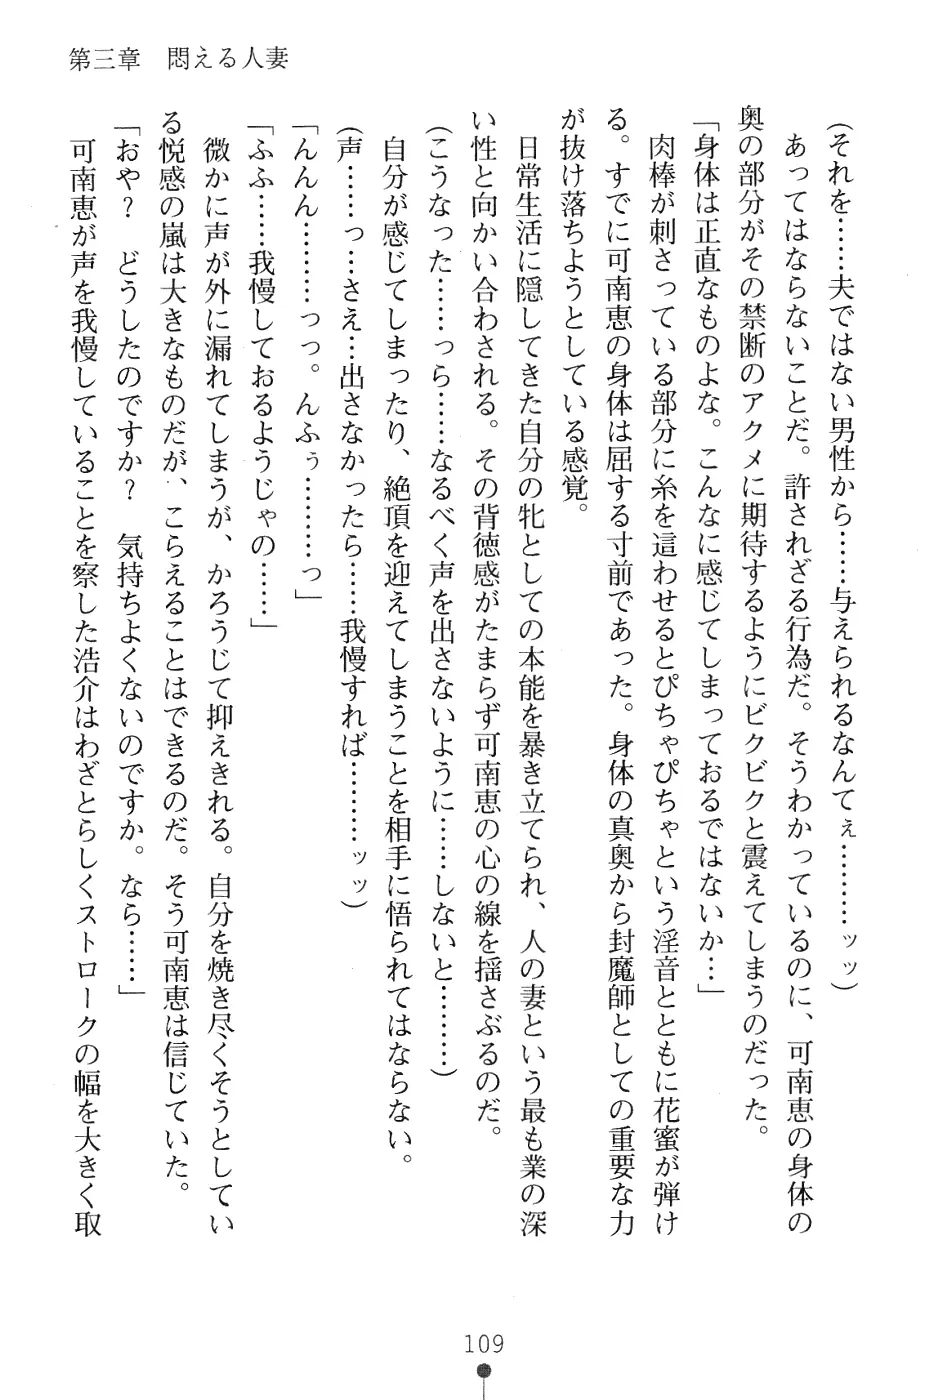 第三章　悶える人妻
（それを……夫ではない男性から……与えられるなんてぇ………ッッ）
　あってはならないことだ。許されざる行為だ。そうわかっているのに、可南恵の身体の
奥の部分がその禁断のアクメに期待するようにビクビクと震えてしまうのだった。
「身体は正直なものよな。こんなに感じてしまっておるではないか…」
　肉棒が刺さっている部分に糸を這わせるとぴちゃぴちゃという淫音とともに花蜜が弾け
る。すでに可南恵の身体は屈する寸前であった。身体の真奥から封魔師としての重要な力
が抜け落ちようとしている感覚。
　日常生活に隠してきた自分の牝としての本能を暴き立てられ、人の妻という最も業の深
い性と向かい合わされる。その背徳感がたまらず可南恵の心の線を揺さぶるのだ。
（こうなった……っら……なるべく声を出さないように……しないと………）
　自分が感じてしまったり、絶頂を迎えてしまうことを相手に悟られてはならない。
（声……っ…さえ…出さなかったら……我慢すれば………ッッ）
「んんん………っっ。んふぅ………っ」
「ふふ……我慢しておるようじゃの……」
　微かに声が外に漏れてしまうが、かろうじて抑えきれる。自分を焼き尽くそうとしてい
る悦感の嵐は大きなものだが、こらえることはできるのだ。そう可南恵は信じていた。
「おや？　どうしたのですか？　気持ちよくないのですか。なら……」
　可南恵が声を我慢していることを察した浩介はわざとらしくストロークの幅を大きく取
109